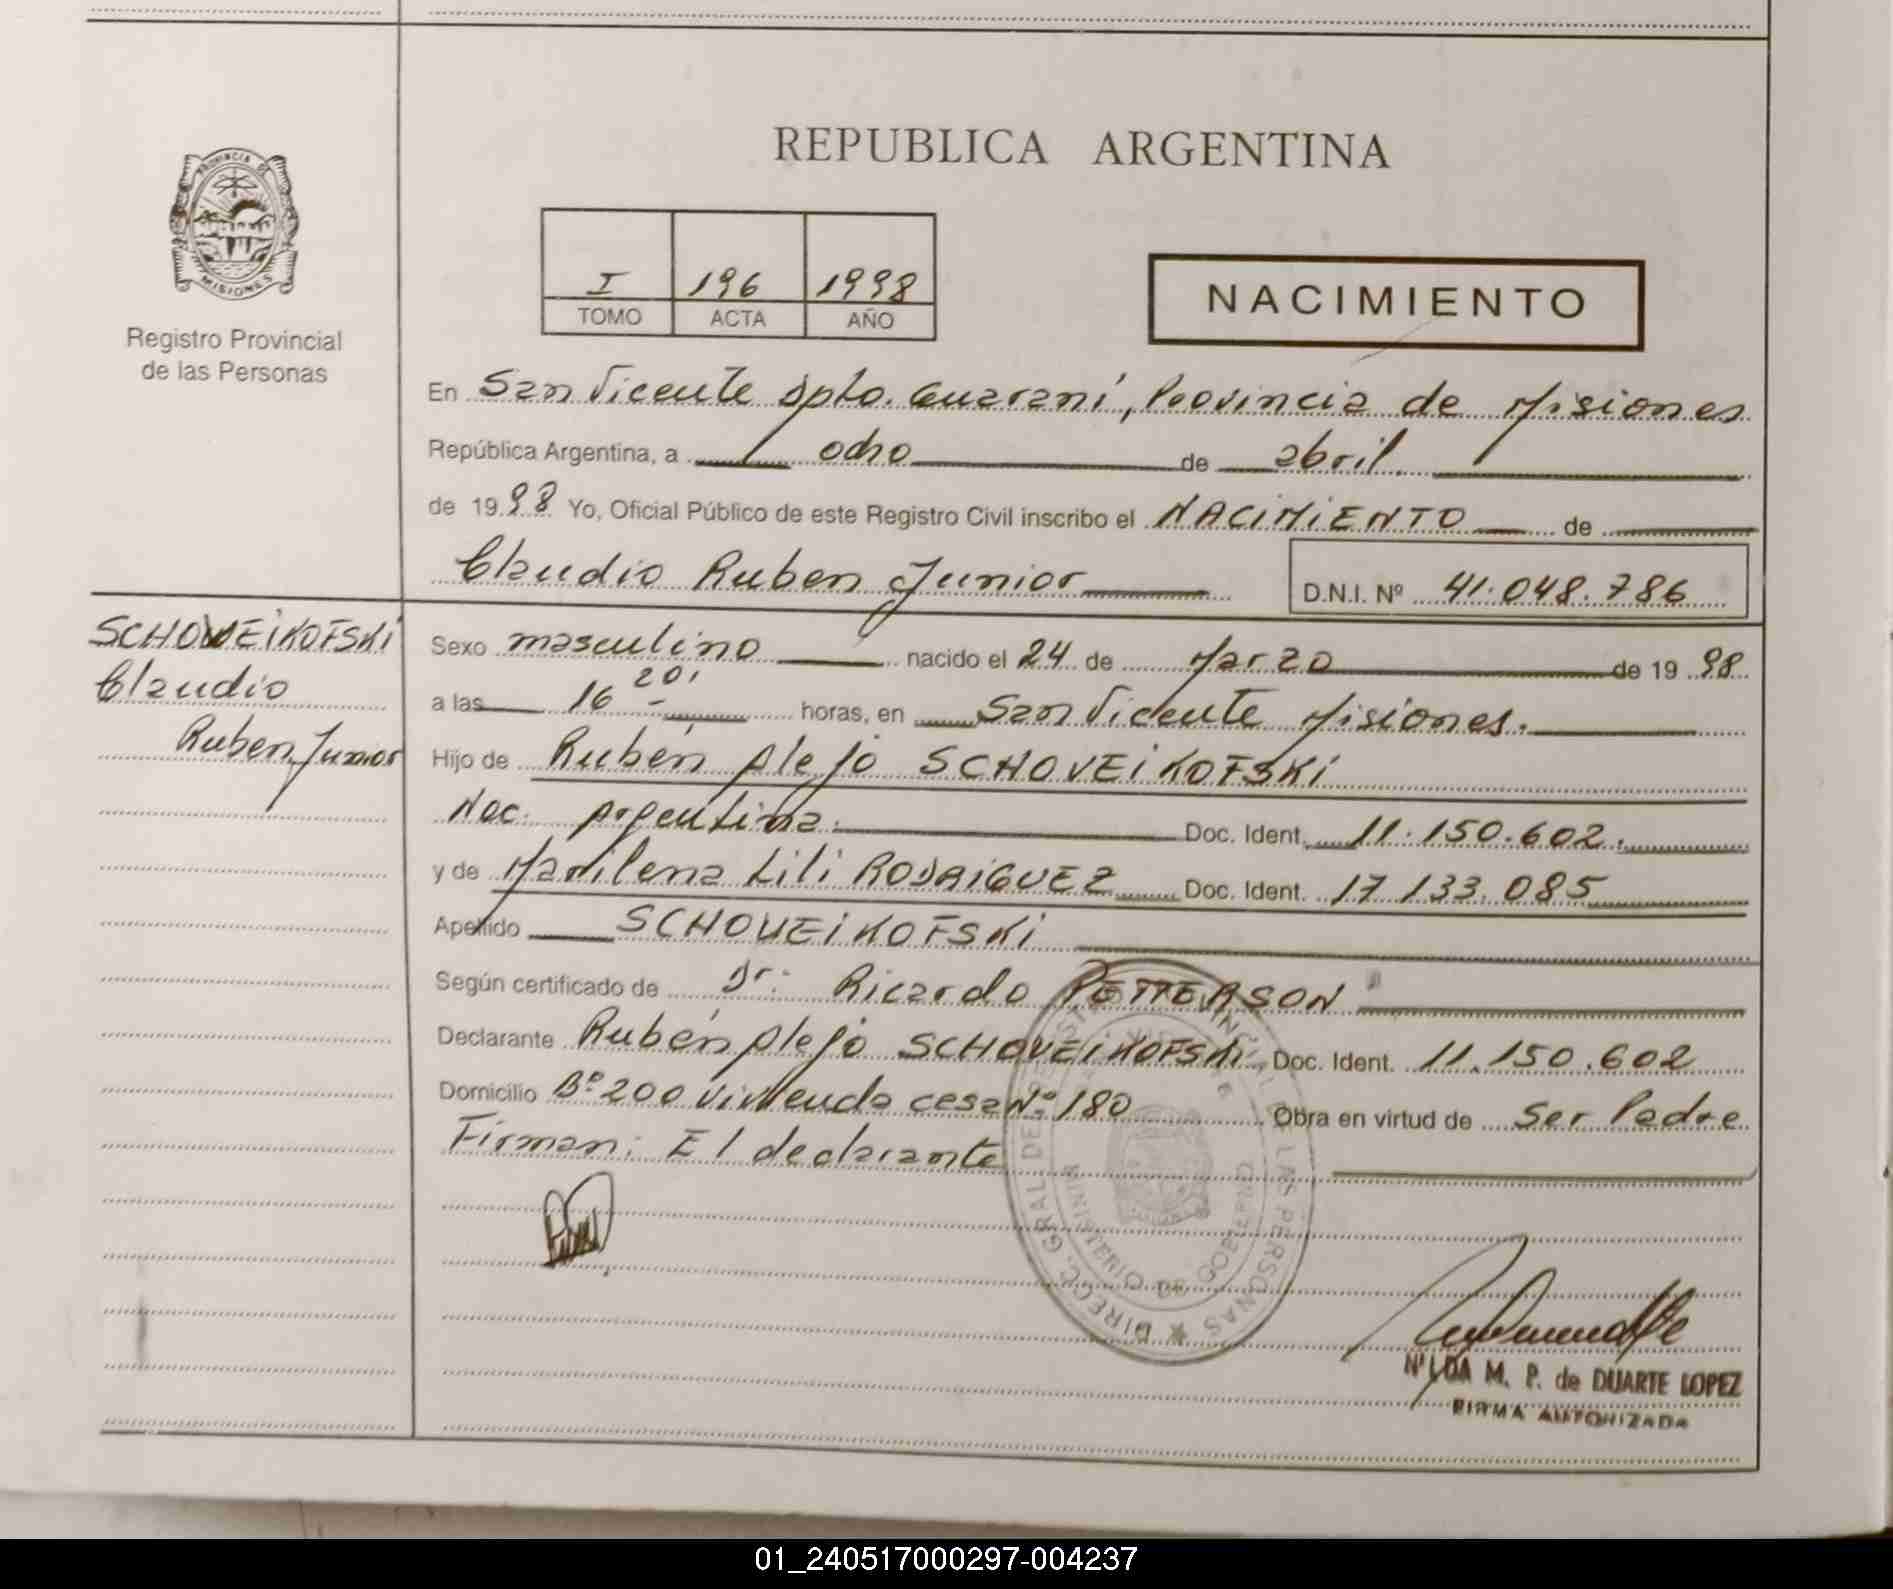 REPUBLICA ARGENTINA
PROVINCIA DE MISIONES
Registro Provincial
de las Personas
I 196 1998
TOMO ACTA AÑO
NACIMIENTO
En San Vicente Dpto. Guaraní, Provincia de Misiones
República Argentina, a ocho de abril
de 1998 Yo, Oficial Público de este Registro Civil inscribo el NACIMIENTO de
Claudio Ruben Junior D.N.I. Nº 41.048.786
SCHOVEIKOFSKI
Claudio
Ruben Junior
Sexo masculino nacido el 24 de Marzo de 1998
a las 16 20' horas, en San Vicente Misiones.
Hijo de Rubén Alejo SCHOVEIKOFSKI
Nac. Argentina. Doc. Ident. 11.150.602.
y de Marilena Lili RODRIGUEZ Doc. Ident. 17.133.085
Apellido SCHOVEIKOFSKI
Según certificado de Dr. Ricardo PETTERSON
Declarante Rubén Alejo SCHOVEIKOFSKI Doc. Ident. 11.150.602
Domicilio Bº 200 Vivienda casa Nº 180 Obra en virtud de Ser Padre
Firman: El declarante
DIRECC. GRAL DE LAS PERSONAS
MINISTERIO DE GOBIERNO
NILDA M. P. de DUARTE LOPEZ
FIRMA AUTORIZADA
01_240517000297-004237